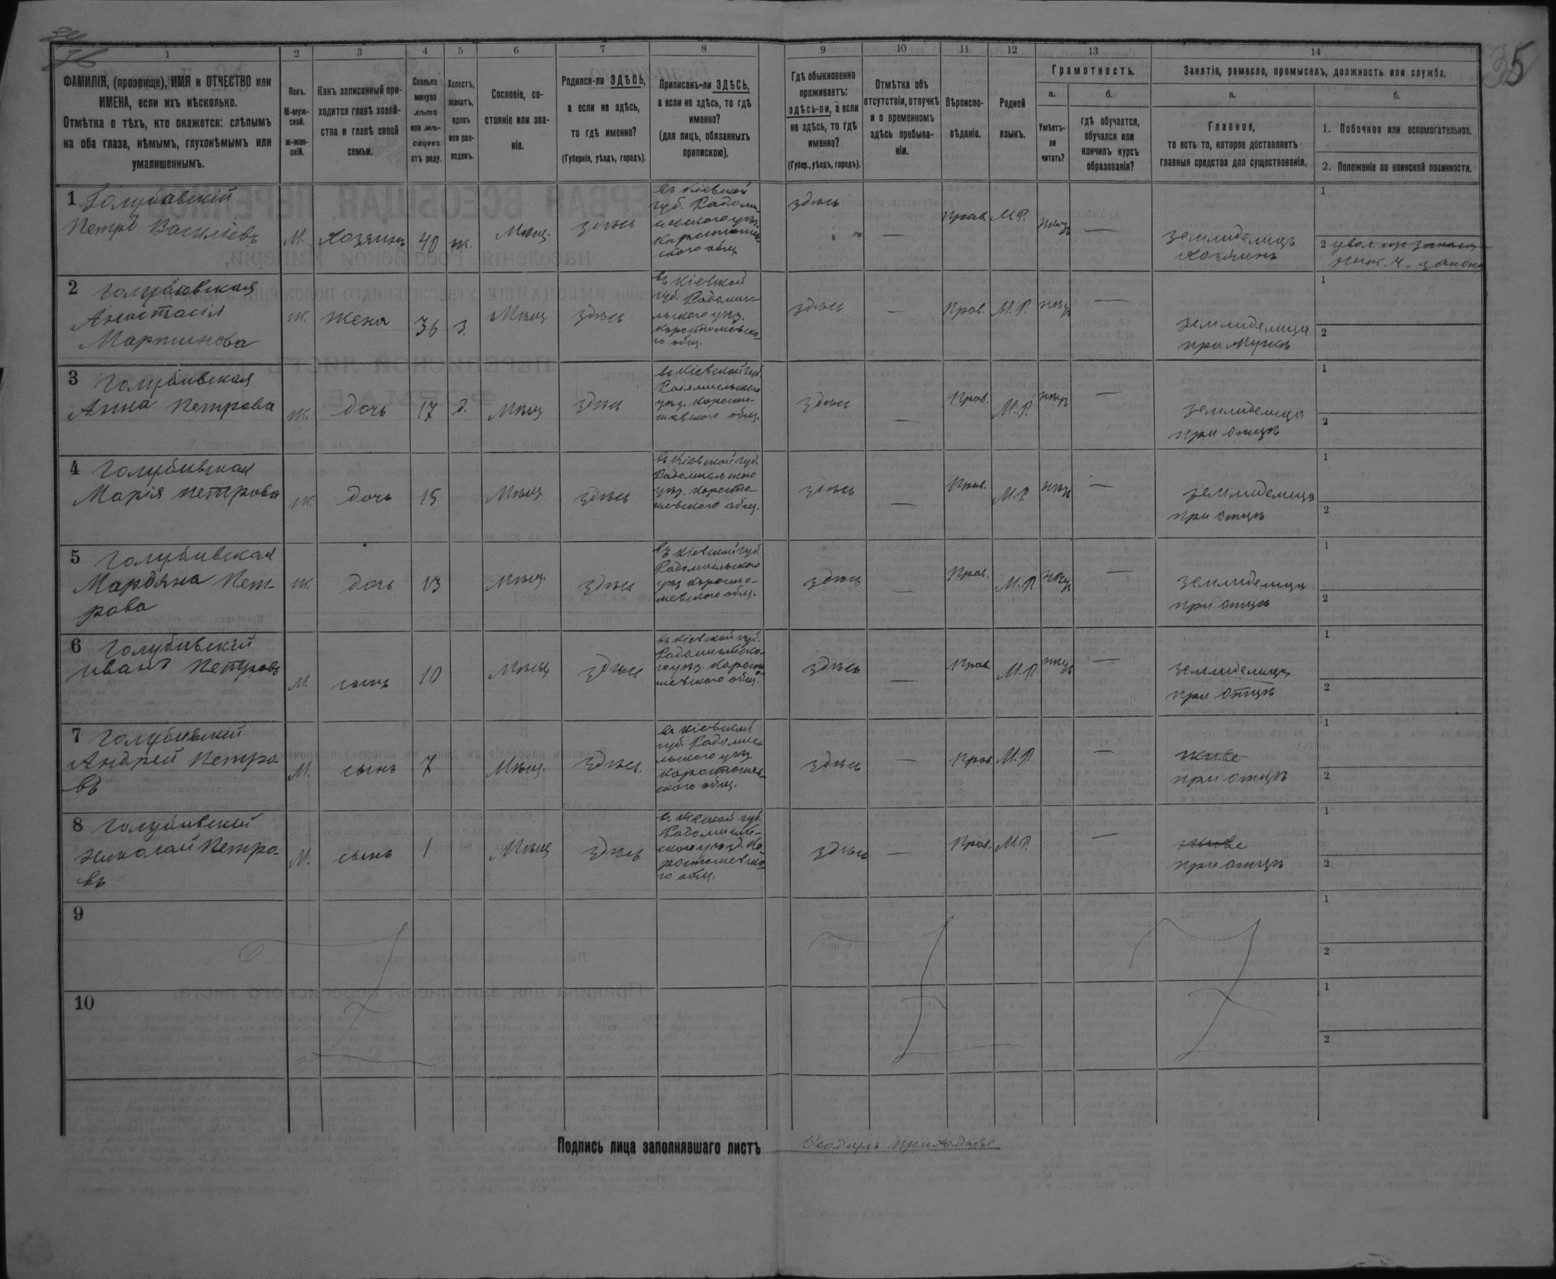 35
1
2
3
4
5
6
7
8
9
10
11
12
13
14
ФАМИЛІЯ, (прозвище), ИМЯ и ОТЧЕСТВО или
ИМЕНА, если ихъ нѣсколько.
Отмѣтка о тѣхъ, кто окажется: слѣпымъ
на оба глаза, нѣмымъ, глухонѣмымъ или
умалишеннымъ.
Полъ.
М-муж-
ской.
Ж-жен-
скій.
Какъ записанный при-
ходится главѣ хозяй-
ства и главѣ своей
семьи.
Сколько
минуло
лѣтъ
или мѣ-
сяцевъ
отъ роду.
Холостъ,
женатъ,
вдовъ
или раз-
веденъ.
Сословіе, со-
стояніе или зва-
ніе.
Родился-ли ЗДѢСЬ,
а если не здѣсь,
то гдѣ именно?
(Губернія, уѣздъ, городъ).
Приписанъ-ли ЗДѢСЬ,
а если не здѣсь, то гдѣ
именно?
(для лицъ, обязанныхъ
припискою).
Гдѣ обыкновенно
проживаетъ:
здѣсь-ли, а если
не здѣсь, то гдѣ
именно?
(Губер., уѣздъ, городъ).
Отмѣтка объ
отсутствіи, отлучкѣ
и о временномъ
здѣсь пребыва-
ніи.
Вѣроиспо-
вѣданіе.
Родной
языкъ.
Грамотность.
а.
Умѣетъ-
ли
читать?
б.
гдѣ обучается,
обучался или
кончилъ курсъ
образованія?
Занятіе, ремесло, промыселъ, должность или служба.
а.
Главное,
то есть то, которое доставляетъ
главныя средства для существованія.
б.
1. Побочное или вспомогательное.
2. Положеніе по воинской повинности.
1 Голубавскій
Петръ Васильевъ
М. Хозяинъ 40 ж. Мѣщ. здѣсь
въ Кіевской
губ. Радомы
сльского узд.
Коростоше
ского общ
здѣсь — Прав. М.Р. нѣтъ —
земледелецъ
хозяинъ
1
2
2 Голубовская
Анастасія
Мартинова
ж. Жена 36 з. Мѣщ здѣсь
въ Кіевской
губ. Радомыс-
льского узд.
Коростошевско-
го общ.
здѣсь — Прав. М.Р. нѣтъ —
земледелица
при мужѣ
1
2
3 Голубивская
Анна Петрова
ж. дочь 17 д. Мѣщ здѣсь
въ Кіевской губ.
Радомысльского
узд. Коросто-
шевского общ.
здѣсь — Прав. М.Р. нѣтъ —
земледелица
при отцѣ
1
2
4 Голубивская
Марія Петрова
ж. дочь 15 Мѣщ здѣсь
въ Кіевской губ.
Радомысльского
узд. Коросто-
шевского общ.
здѣсь — Прав. М.Р. нѣтъ —
земледелица
при отцѣ
1
2
5 Голубивская
Марьяна Пет-
рова
ж. дочь 13 Мѣщ здѣсь
въ Кіевской губ.
Радомысльского
узд Коросто-
шевского общ.
здѣсь — Прав. М.Р. нѣтъ —
земледелица
при отцѣ
1
2
6 Голубивскій
Иванъ Петровъ
М. сынъ 10 Мѣщ здѣсь
въ Кіевской губ.
Радомысльско-
го узд. Коросто
шевского общ.
здѣсь — Прав М.Р. нѣтъ —
земледелецъ
при отцѣ
1
2
7 Голубивскій
Андрей Петро
въ
М. сынъ 7 Мѣщ. здѣсь
въ Кіевской
губ. Радомыс-
льского узд
Коростошев
ского общ.
здѣсь — Прав М.Р. —
при отцѣ
1
2
8 Голубивскій
Николай Петро-
въ
М. сынъ 1 Мѣщ здѣсь
въ Кіевской губ.
Радомысль-
ского узд. Ко-
ростошевско-
го общ.
здѣсь — Прав. М.Р. —
при отцѣ
1
2
9
1
2
10
1
2
Подпись лица заполнявшаго листъ